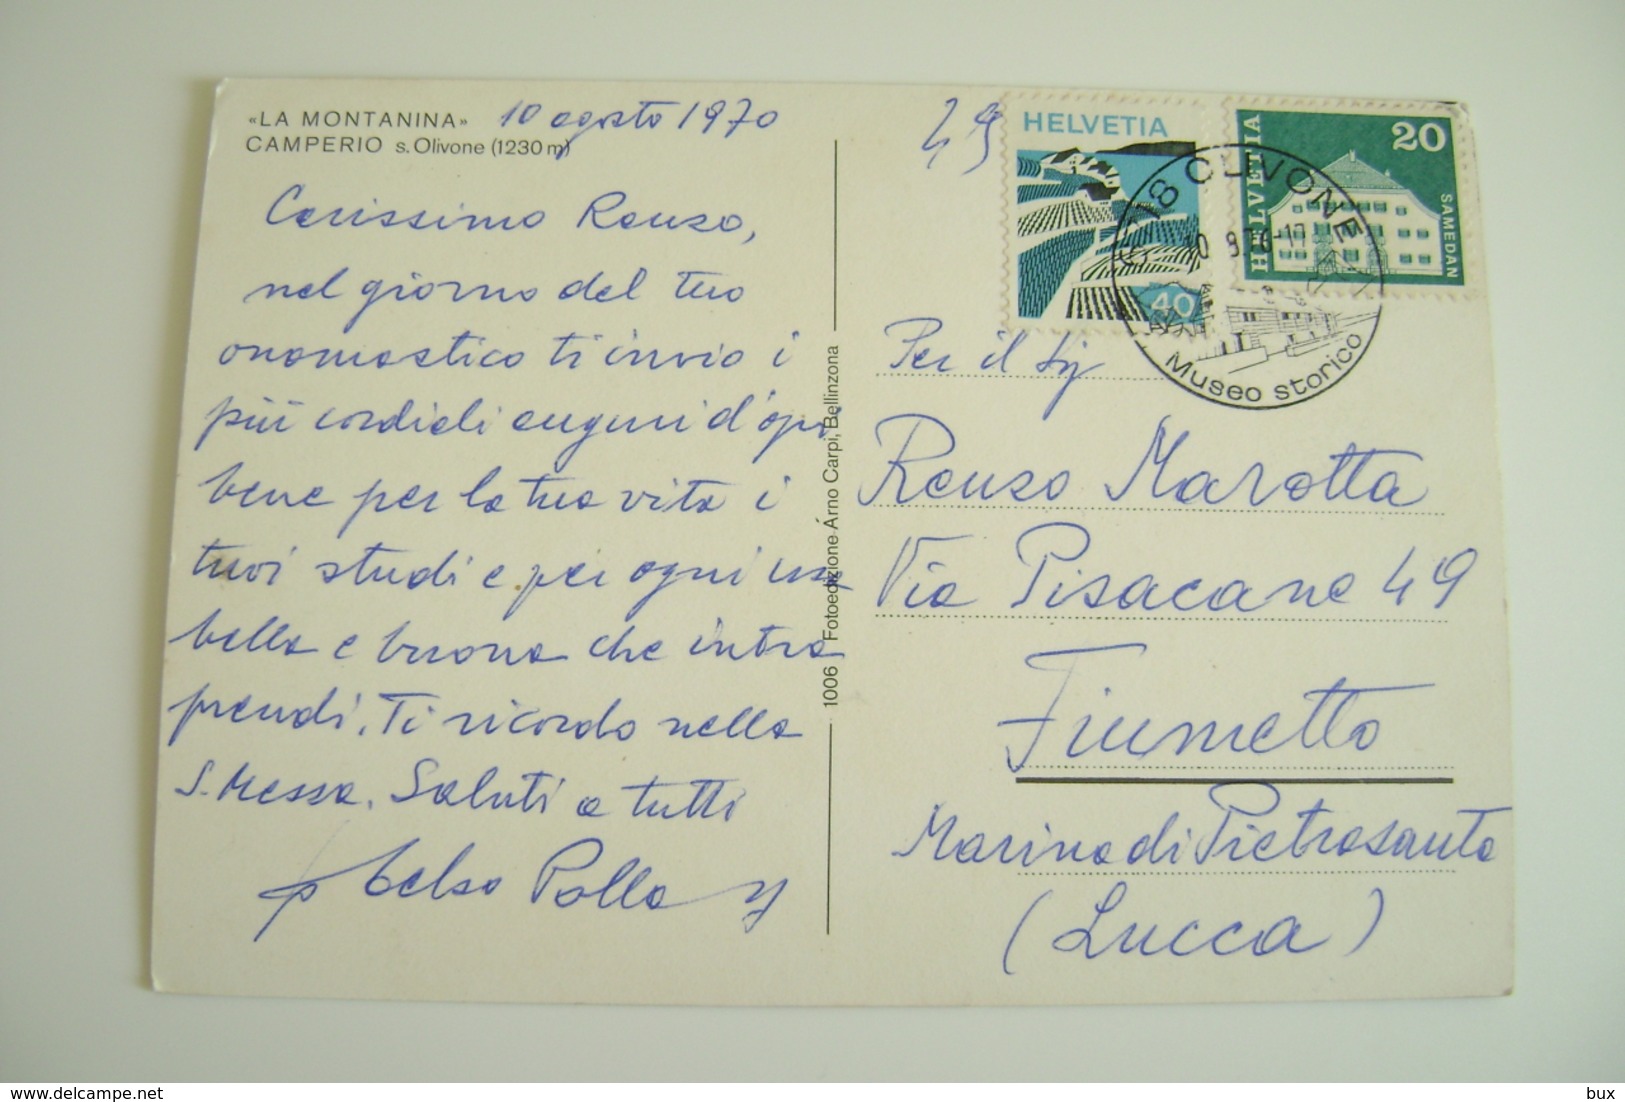 «LA MONTANINA»
CAMPERIO s. Olivone (1230 m)
10 agosto 1970
Carissimo Renzo,
nel giorno del tuo
onomastico ti invio i
più cordiali auguri d'ogni
bene per la tua vita i
tuoi studi e per ogni cosa
bella e buona che intra
prendi. Ti ricordo nella
S. Messa. Saluti a tutti
Celso Polla
1006 Fotoedizione Árno Carpi, Bellinzona
49
HELVETIA
40
HELVETIA
20
SAMEDAN
6718 OLIVONE
10.8.70-17
Museo storico
Per il Sig
Renzo Marotta
Via Pisacane 49
Fiumetto
Marina di Pietrasanta
(Lucca)
bux
delcampe.net